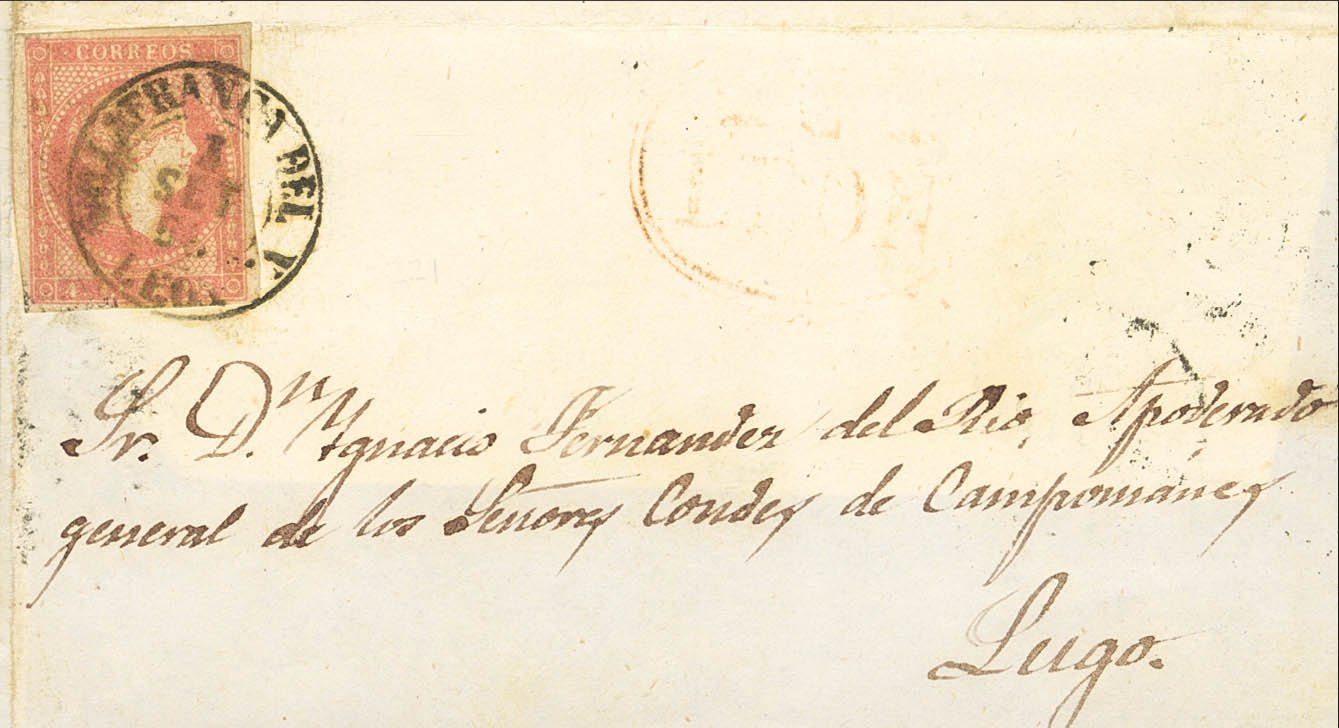 CORREOS
VILLAFRANCA DEL V.
SET
LEON
4 S
LEON
Sr. Dn Ygnacio Fernandez del Rio, Apoderado
general de los Señores Condes de Campomanes
Lugo.